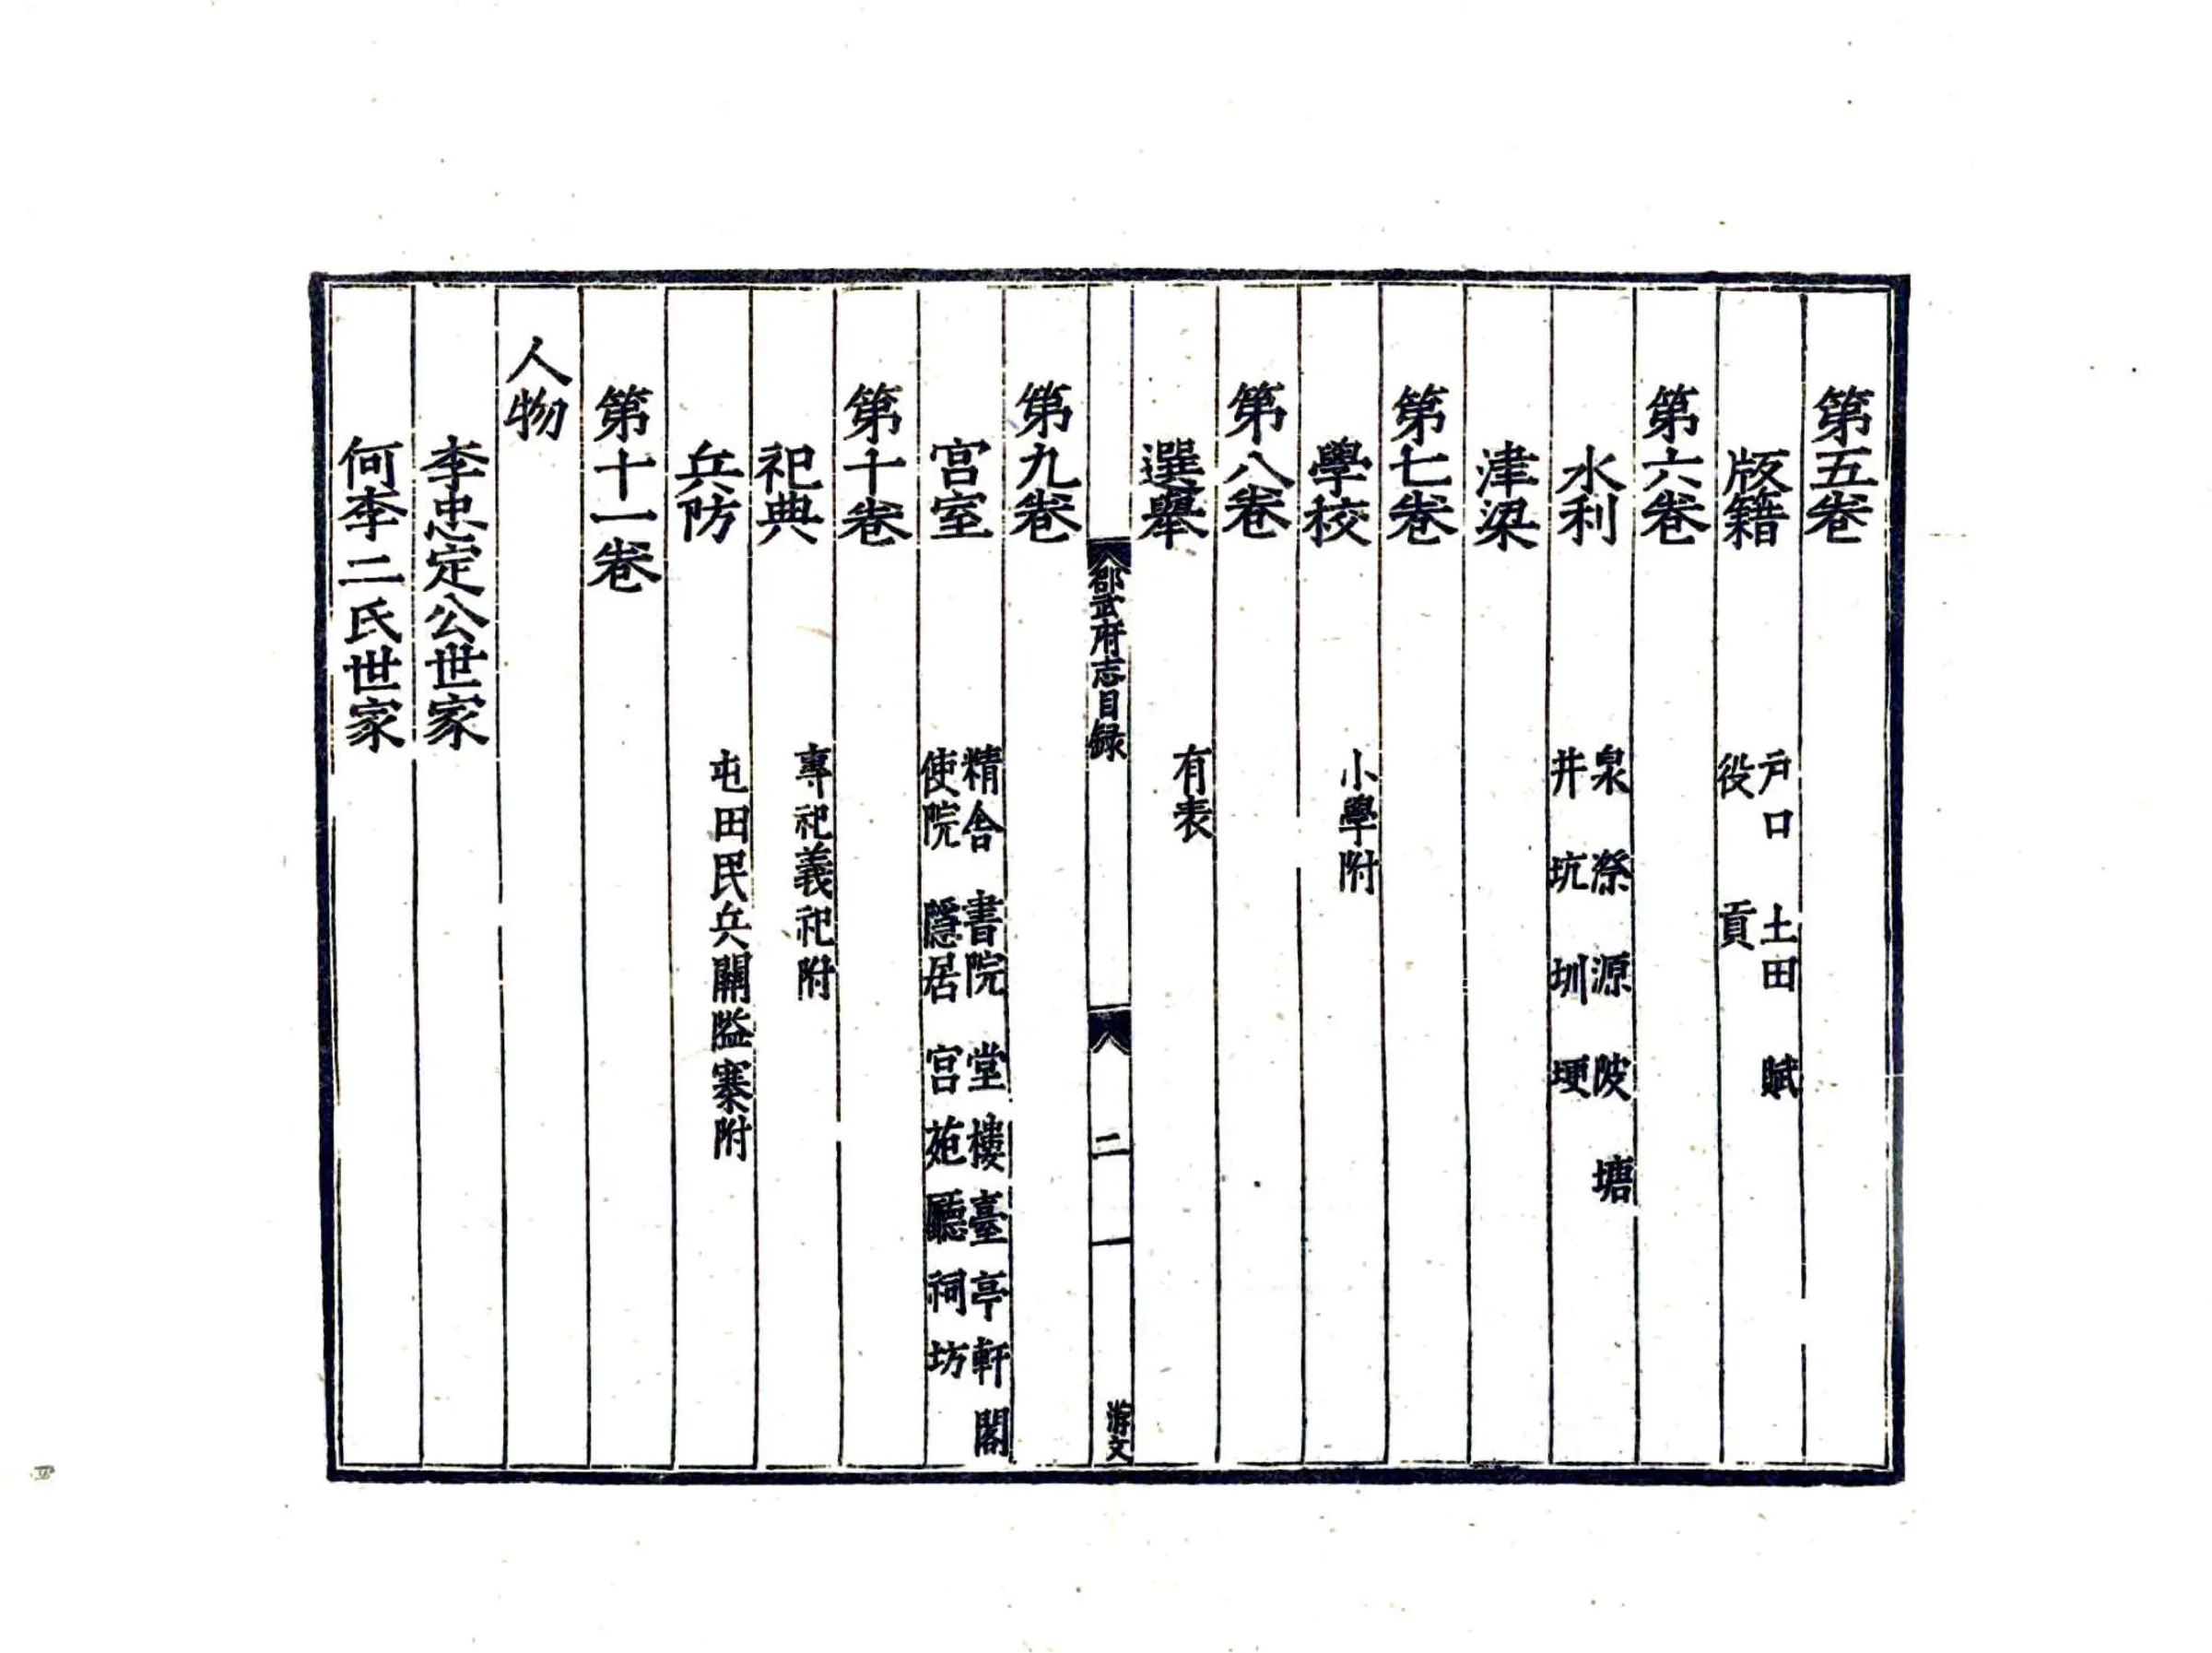 第五卷
版籍 戶口 土田 賦
役 貢
第六卷
水利 泉 濴 源 陂 塘
井 坑 圳 埂
津梁
第七卷
學校 小學附
第八卷
選舉 有表
邵武府志目録 二 游文
第九卷
宫室 精舍 書院 堂樓臺亭軒閣
使院 隱居 宫苑廳祠坊
第十卷
祀典 專祀義祀附
兵防 屯田民兵關隘寨附
第十一卷
人物
李忠定公世家
何李二氏世家